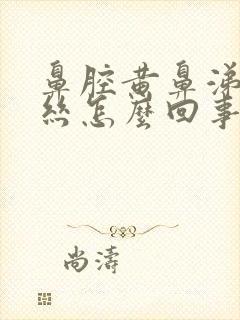 鼻腔黄鼻涕
丝怎麽回事
尚濤